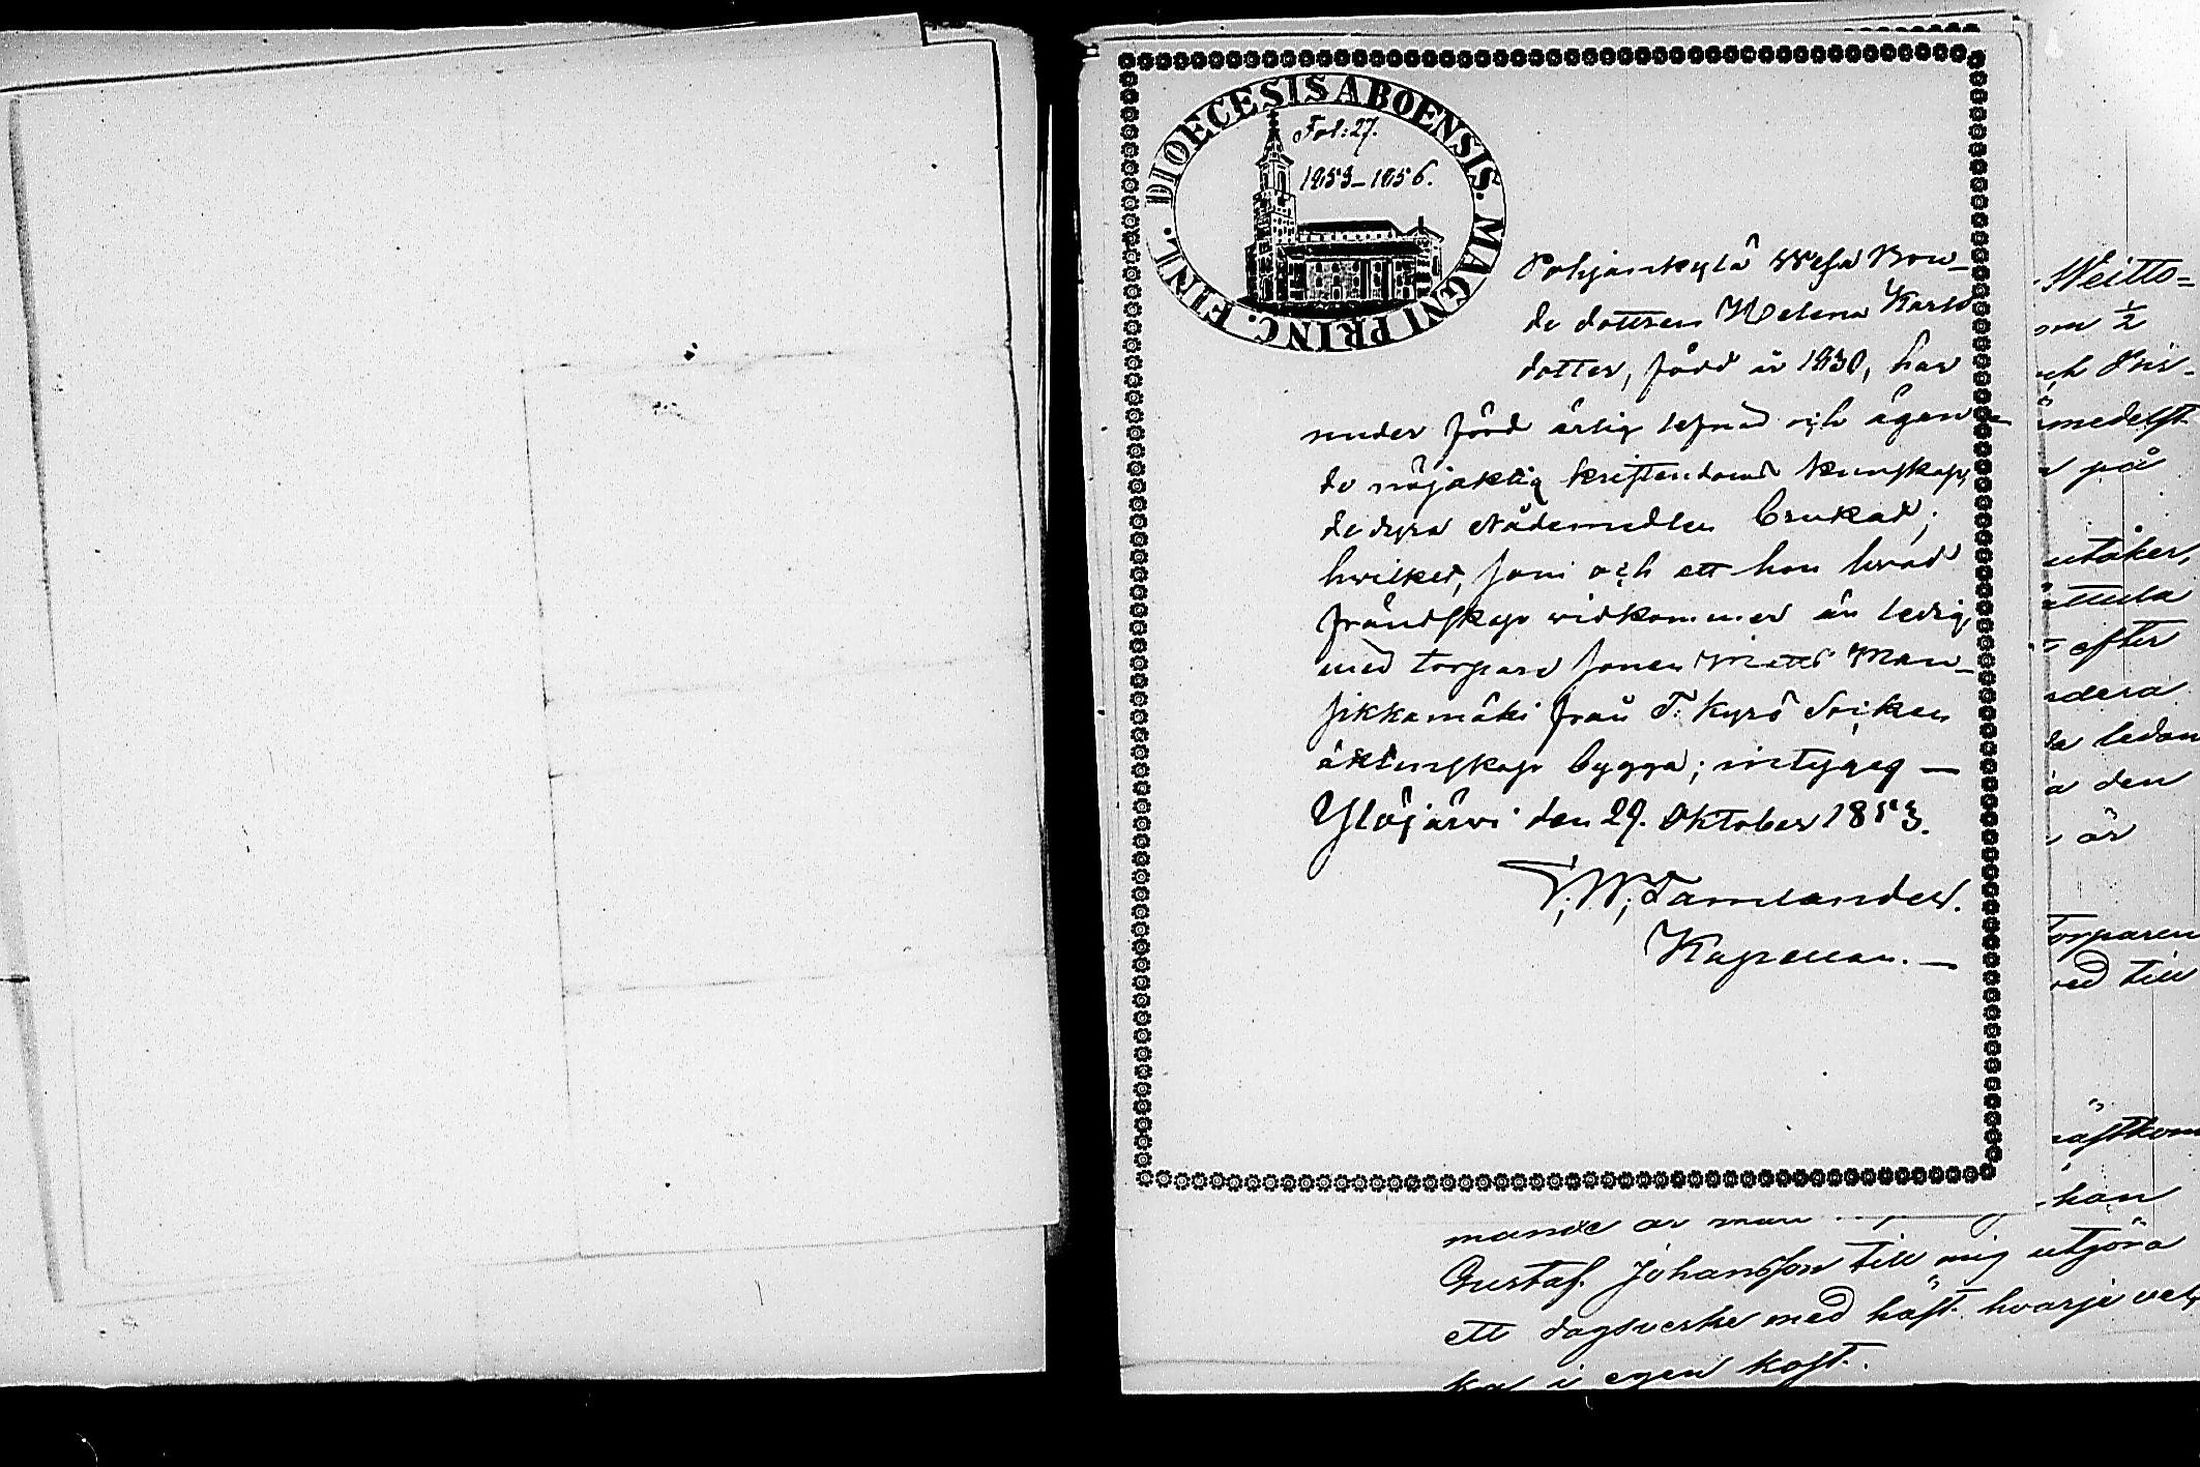 DIOECESIS ABOENSIS. MAGNI PRINC. FINL.
Fol: 27.
1853–1856.
Pohjankylä Wefa Bon-
de dottren Helena Karls
dotter, född år 1830, har
under förd ärlig lefnad och ägan-
de nöjaktig kristendoms kunskap,
de dyra Nådemedlen brukat;
hvilket, som och att hon hvad
frändskap widkommer är ledig
med torpare sonen Matts Man-
sikkamäki från T: Kyrö Socken
äktenskap bygga; intygag —
Ylöjärvi den 29. Oktober 1853.
F; W; Tamlander.
Kapellan. —
Weitto=
½
och
medelst
på
utåker,
efter
ledan
den
är
Torparen
till
nästkom
han
mande år
Gustaf Johansson till mig utgöra
ett dagsverke med häst hvarje vec
ka i egen kost.